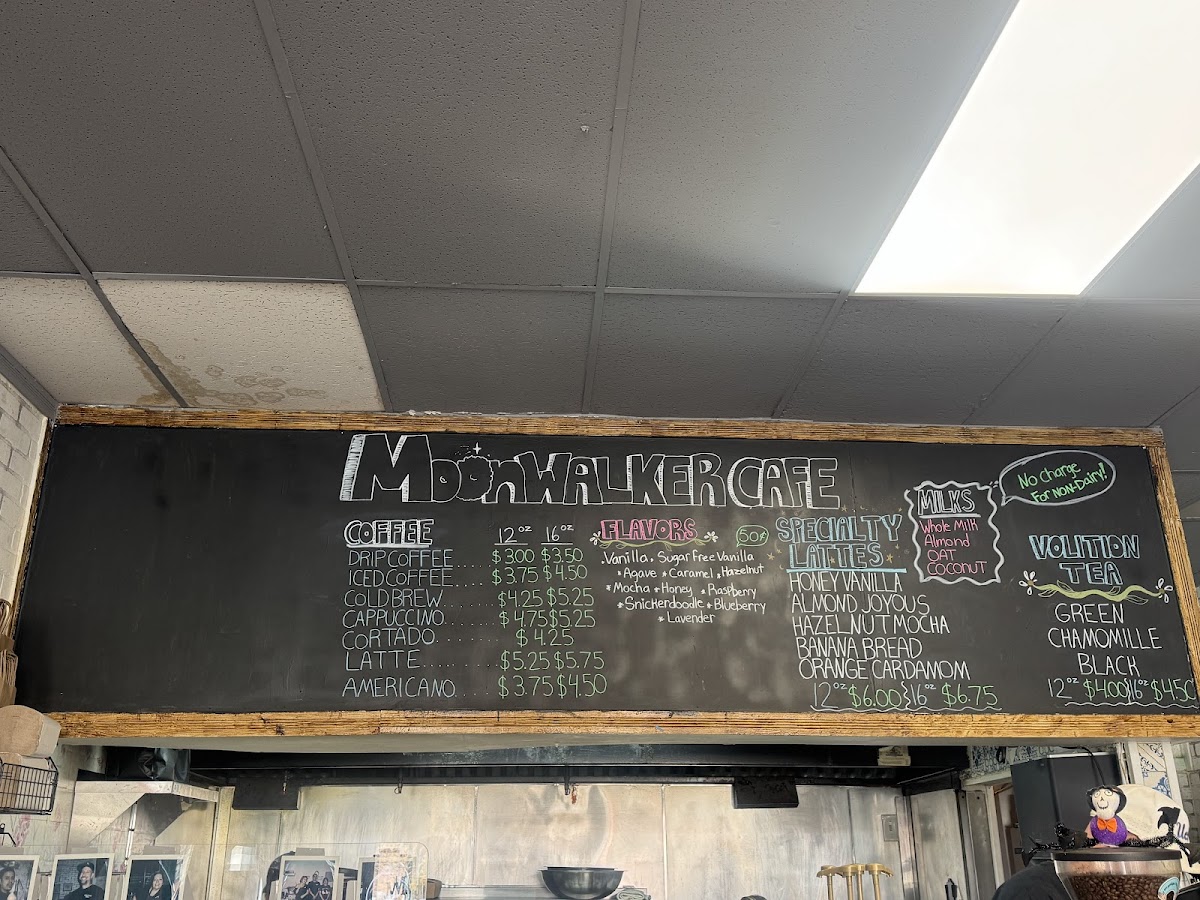 MOONWALKER CAFE
COFFEE 12oz 16oz
DRIP COFFEE.... $3.00 $3.50
ICED COFFEE.... $3.75 $4.50
COLD BREW........ $4.25 $5.25
CAPPUCCINO........ $4.75 $5.25
CORTADO........ $4.25
LATTE......... $5.25 $5.75
AMERICANO...... $3.75 $4.50
FLAVORS 50¢
• Vanilla • Sugar Free Vanilla
* Agave * Caramel * Hazelnut
* Mocha * Honey * Raspberry
* Snickerdoodle * Blueberry
* Lavender
SPECIALTY
LATTES
HONEY VANILLA
ALMOND JOYOUS
HAZELNUT MOCHA
BANANA BREAD
ORANGE CARDAMOM
12oz $6.00 16oz $6.75
MILKS
Whole Milk
Almond
OAT
COCONUT
No charge
FOR NON-Dairy!!
VOLITION
TEA
GREEN
CHAMOMILLE
BLACK
12oz $4.00 16oz $4.50